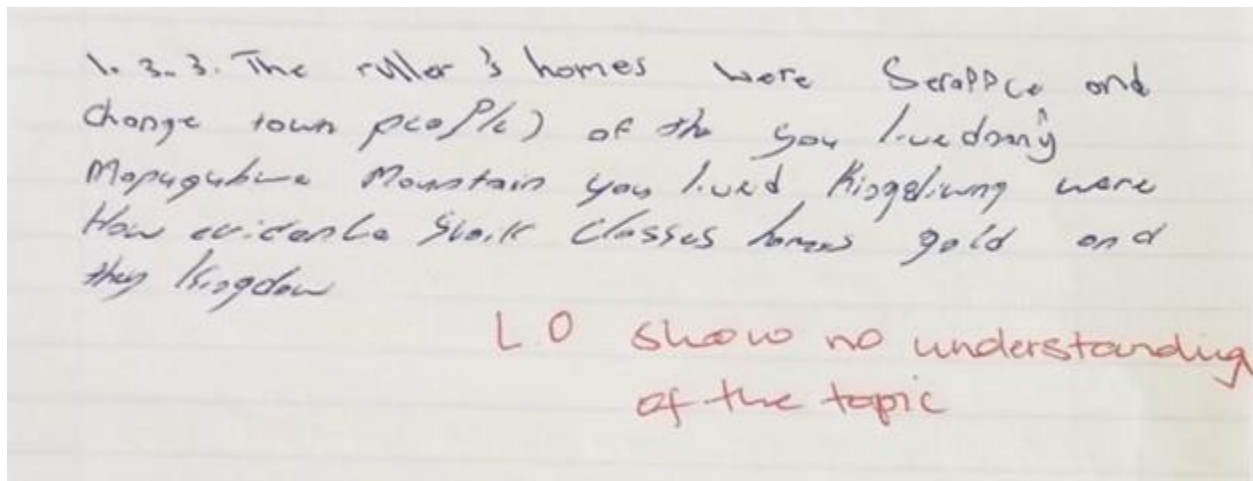 1.3.3. The ruller's homes were and
change town people) of the you lived
Mapugubwe Mountain you lived were
How evidence classes homes gold and
they kingdom
L0 show no understanding
of the topic